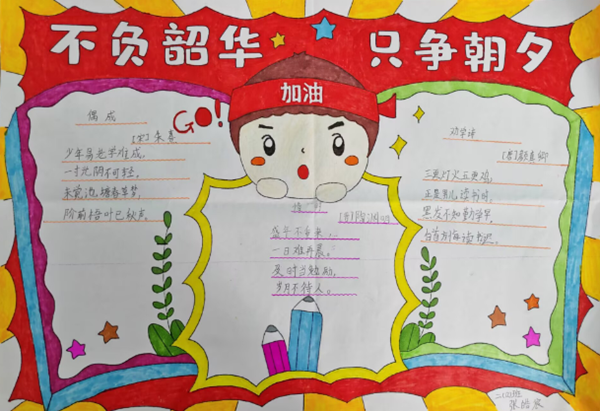 不负韶华 只争朝夕
加油
GO!
偶成
[宋]朱熹
少年易老学难成,
一寸光阴不可轻。
未觉池塘春草梦,
阶前梧叶已秋声。
[晋]陶渊明
盛年不重来,
一日难再晨。
及时当勉励,
岁月不待人。
劝学诗
[唐]颜真卿
三更灯火五更鸡,
正是男儿读书时。
黑发不知勤学早,
白首方悔读书迟。